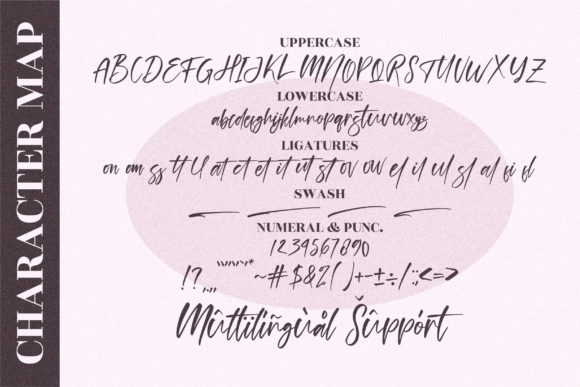 CHARACTER MAP
UPPERCASE
ABCDEFGHIJKLMNOPQRSTUVWXYZ
LOWERCASE
abcdefghijklmnopqrstuvwxyz
LIGATURES
on om ss tt ll at et it ut st ov ow el il ul sl al fi fl
SWASH
NUMERAL & PUNC.
1234567890
!?.,,, ~#$&2()+-±÷/:;<=>
Mûltïlíñgùål Šûppórt